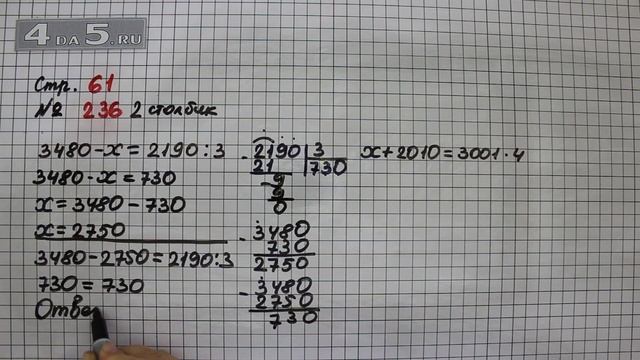 4DA5.RU
Стр. 61
№ 236 2 столбик
3480-x=2190:3
3480-x=730
x=3480-730
x=2750
3480-2750=2190:3
730=730
Отве
- 2190 | 3
21 | 730
- 9
9
0
- 3480
730
2750
- 3480
2750
730
x+2010=3001·4